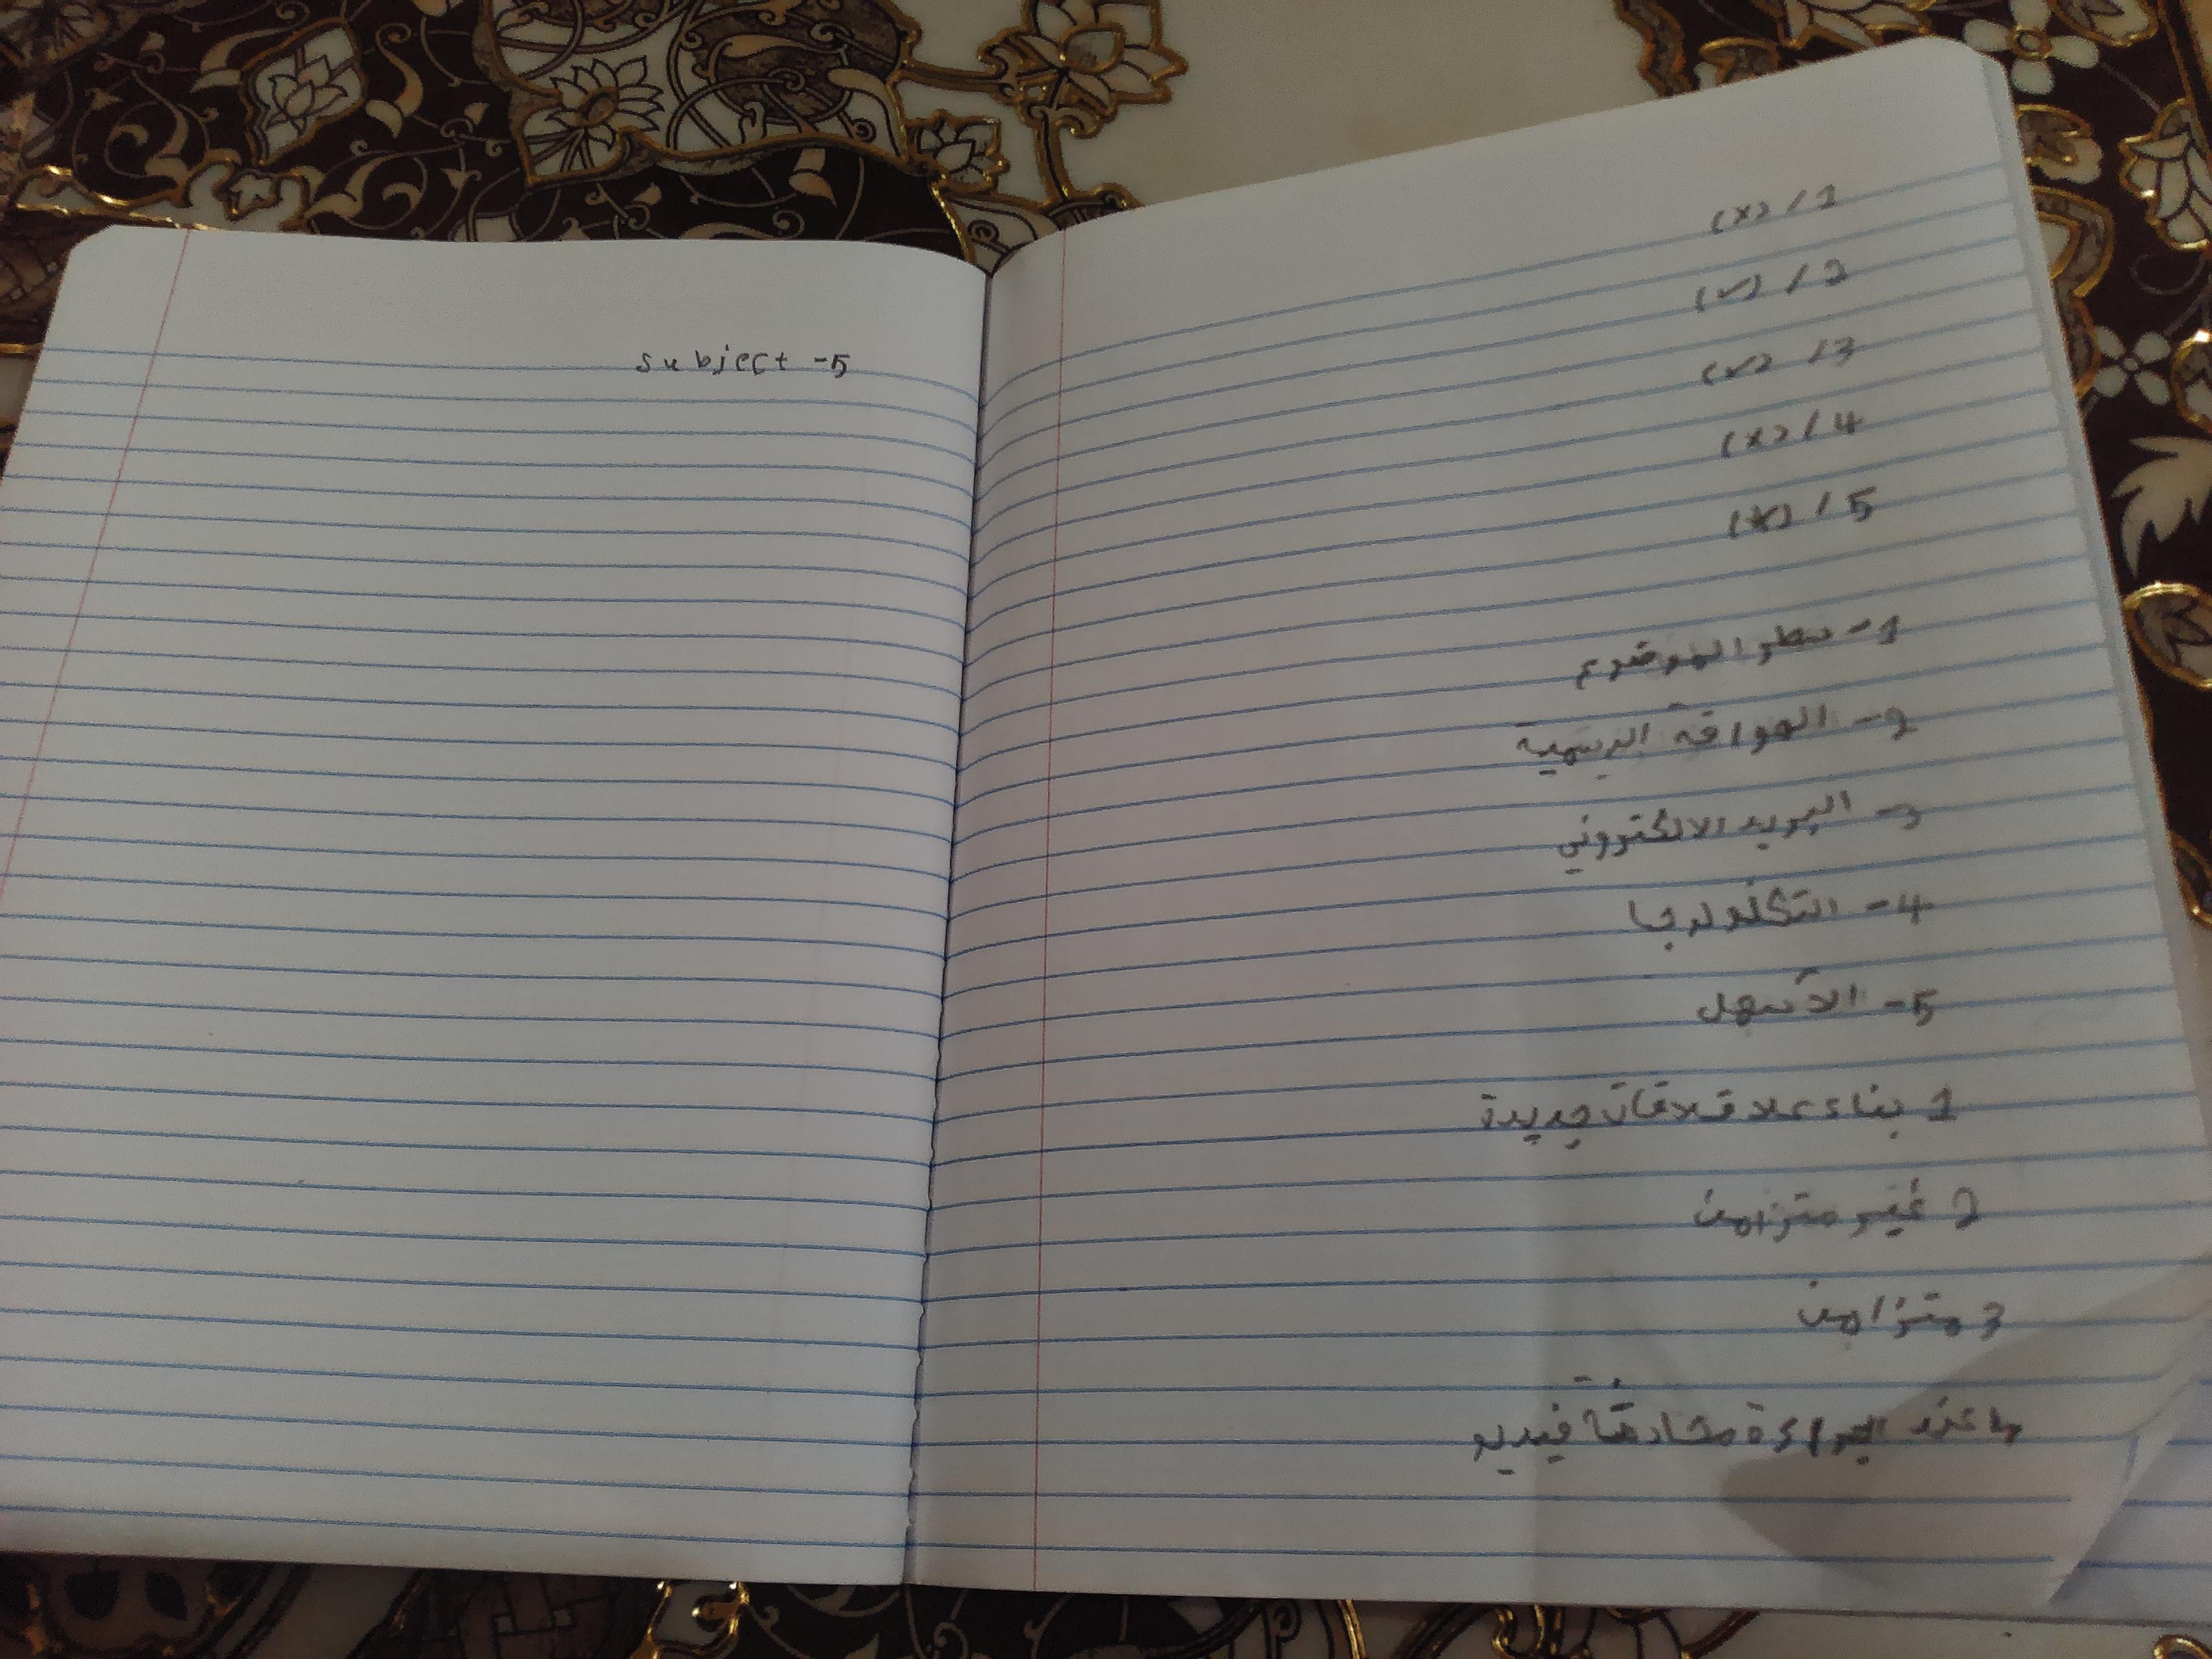 1 / (x)
2 / (✓)
3 / (✓)
4 / (x)
5 /
1- سطر الموضوع
2- الموافقة الرسمية
3- البريد الالكتروني
4- التكنولوجيا
5- الأسهل
1 بناء علاقلاقات جديدة
2 غير متزامن
3 متزامن
4 عند فيديو
5- subject